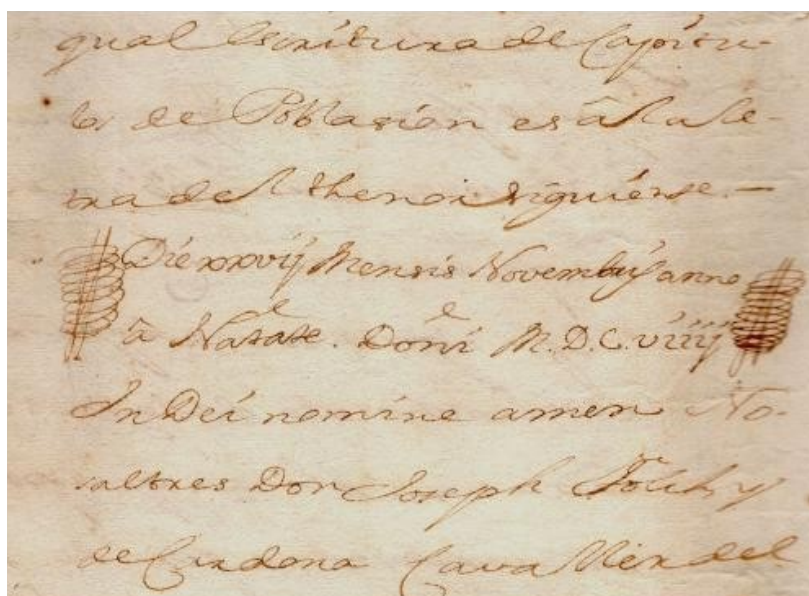 qual escritura de Capitu-
los de Poblasion es â la le-
tra del thenor siguiense. —
Die xxvij Mensis Novembrij anno
â Natate. Doñi M.D.C.viiij
In Dei nomine amen No-
saltres Don Joseph Folch y
de Cardona Cavaller del